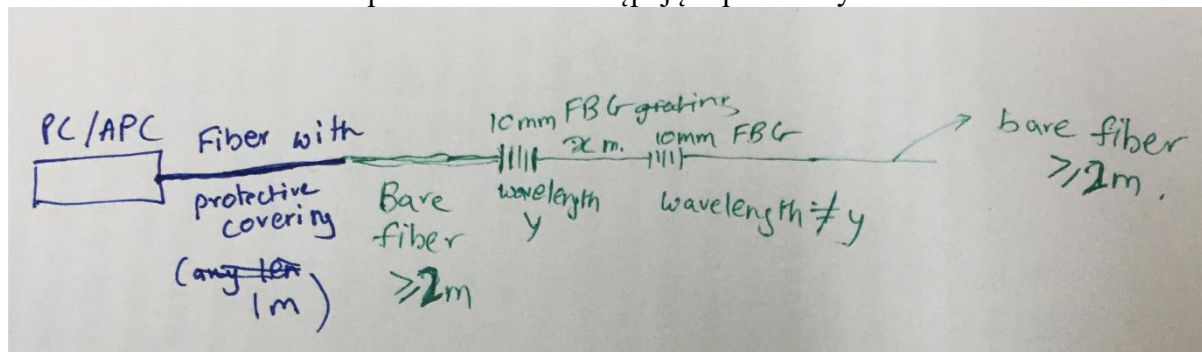 PC/APC
Fiber with
protective
covering
(any len
1m)
Bare
fiber
≥2m
10mm FBG grating
x m.
wavelength
y
10mm FBG
wavelength ≠ y
bare fiber
≥2m.